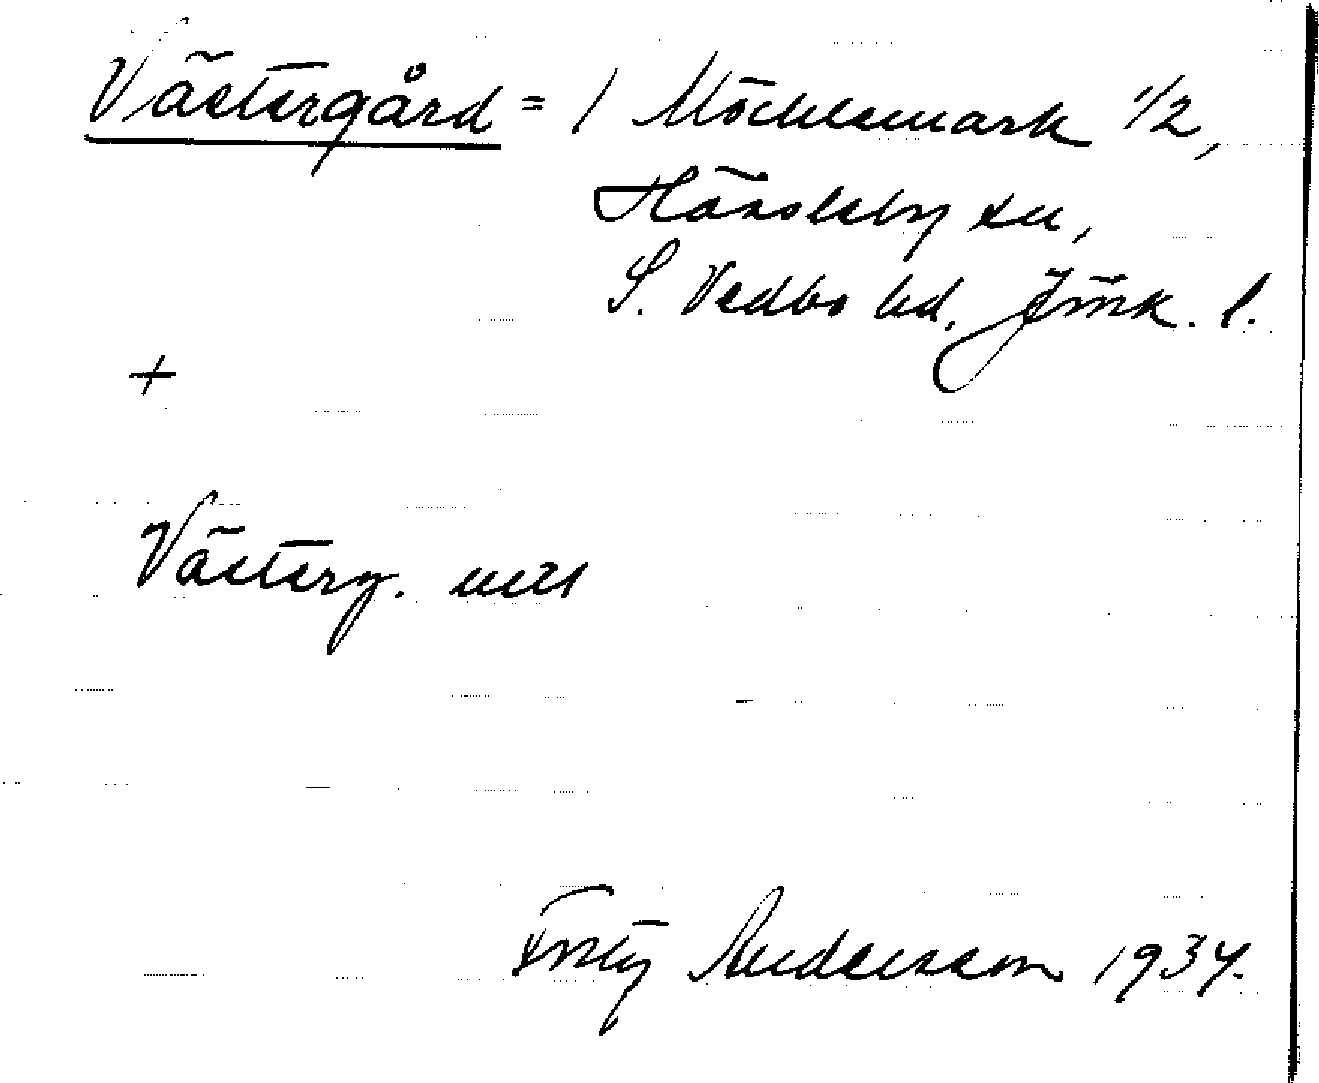 Västergård = 1 Möcklemark 1/2,
Häradsby sn,
S. Vedbo hd, Jönk. l.
+
Västerg.
Fritz Andersson 1934.